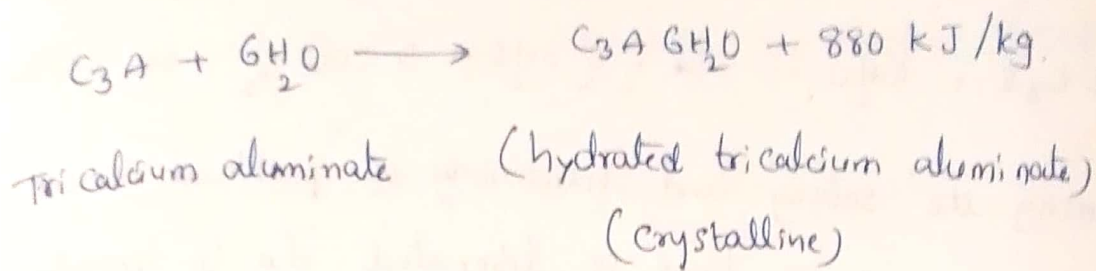 C₃A + 6H₂O ⟶ C₃A 6H₂O + 880 kJ/kg.
Tricalcium aluminate (hydrated tricalcium aluminate)
(crystalline)